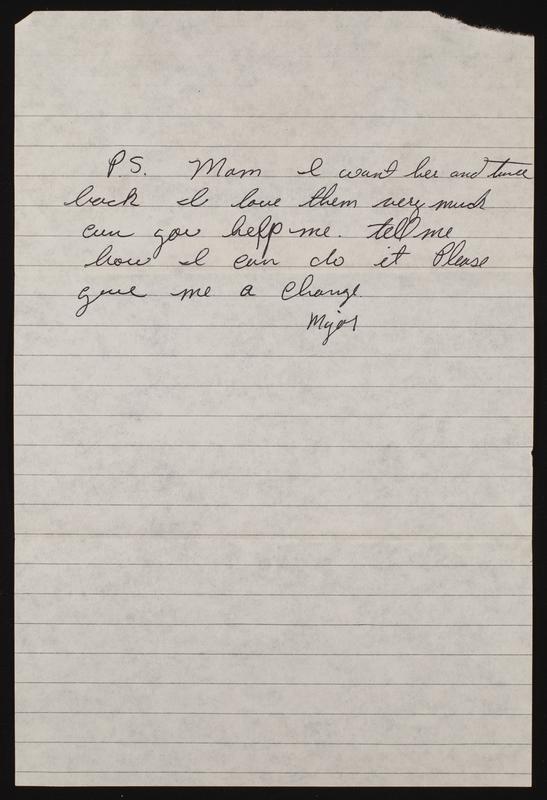 P.S. Mom I want her and
back I love them very much
can you help me. tell me
how I can do it Please
give me a change.